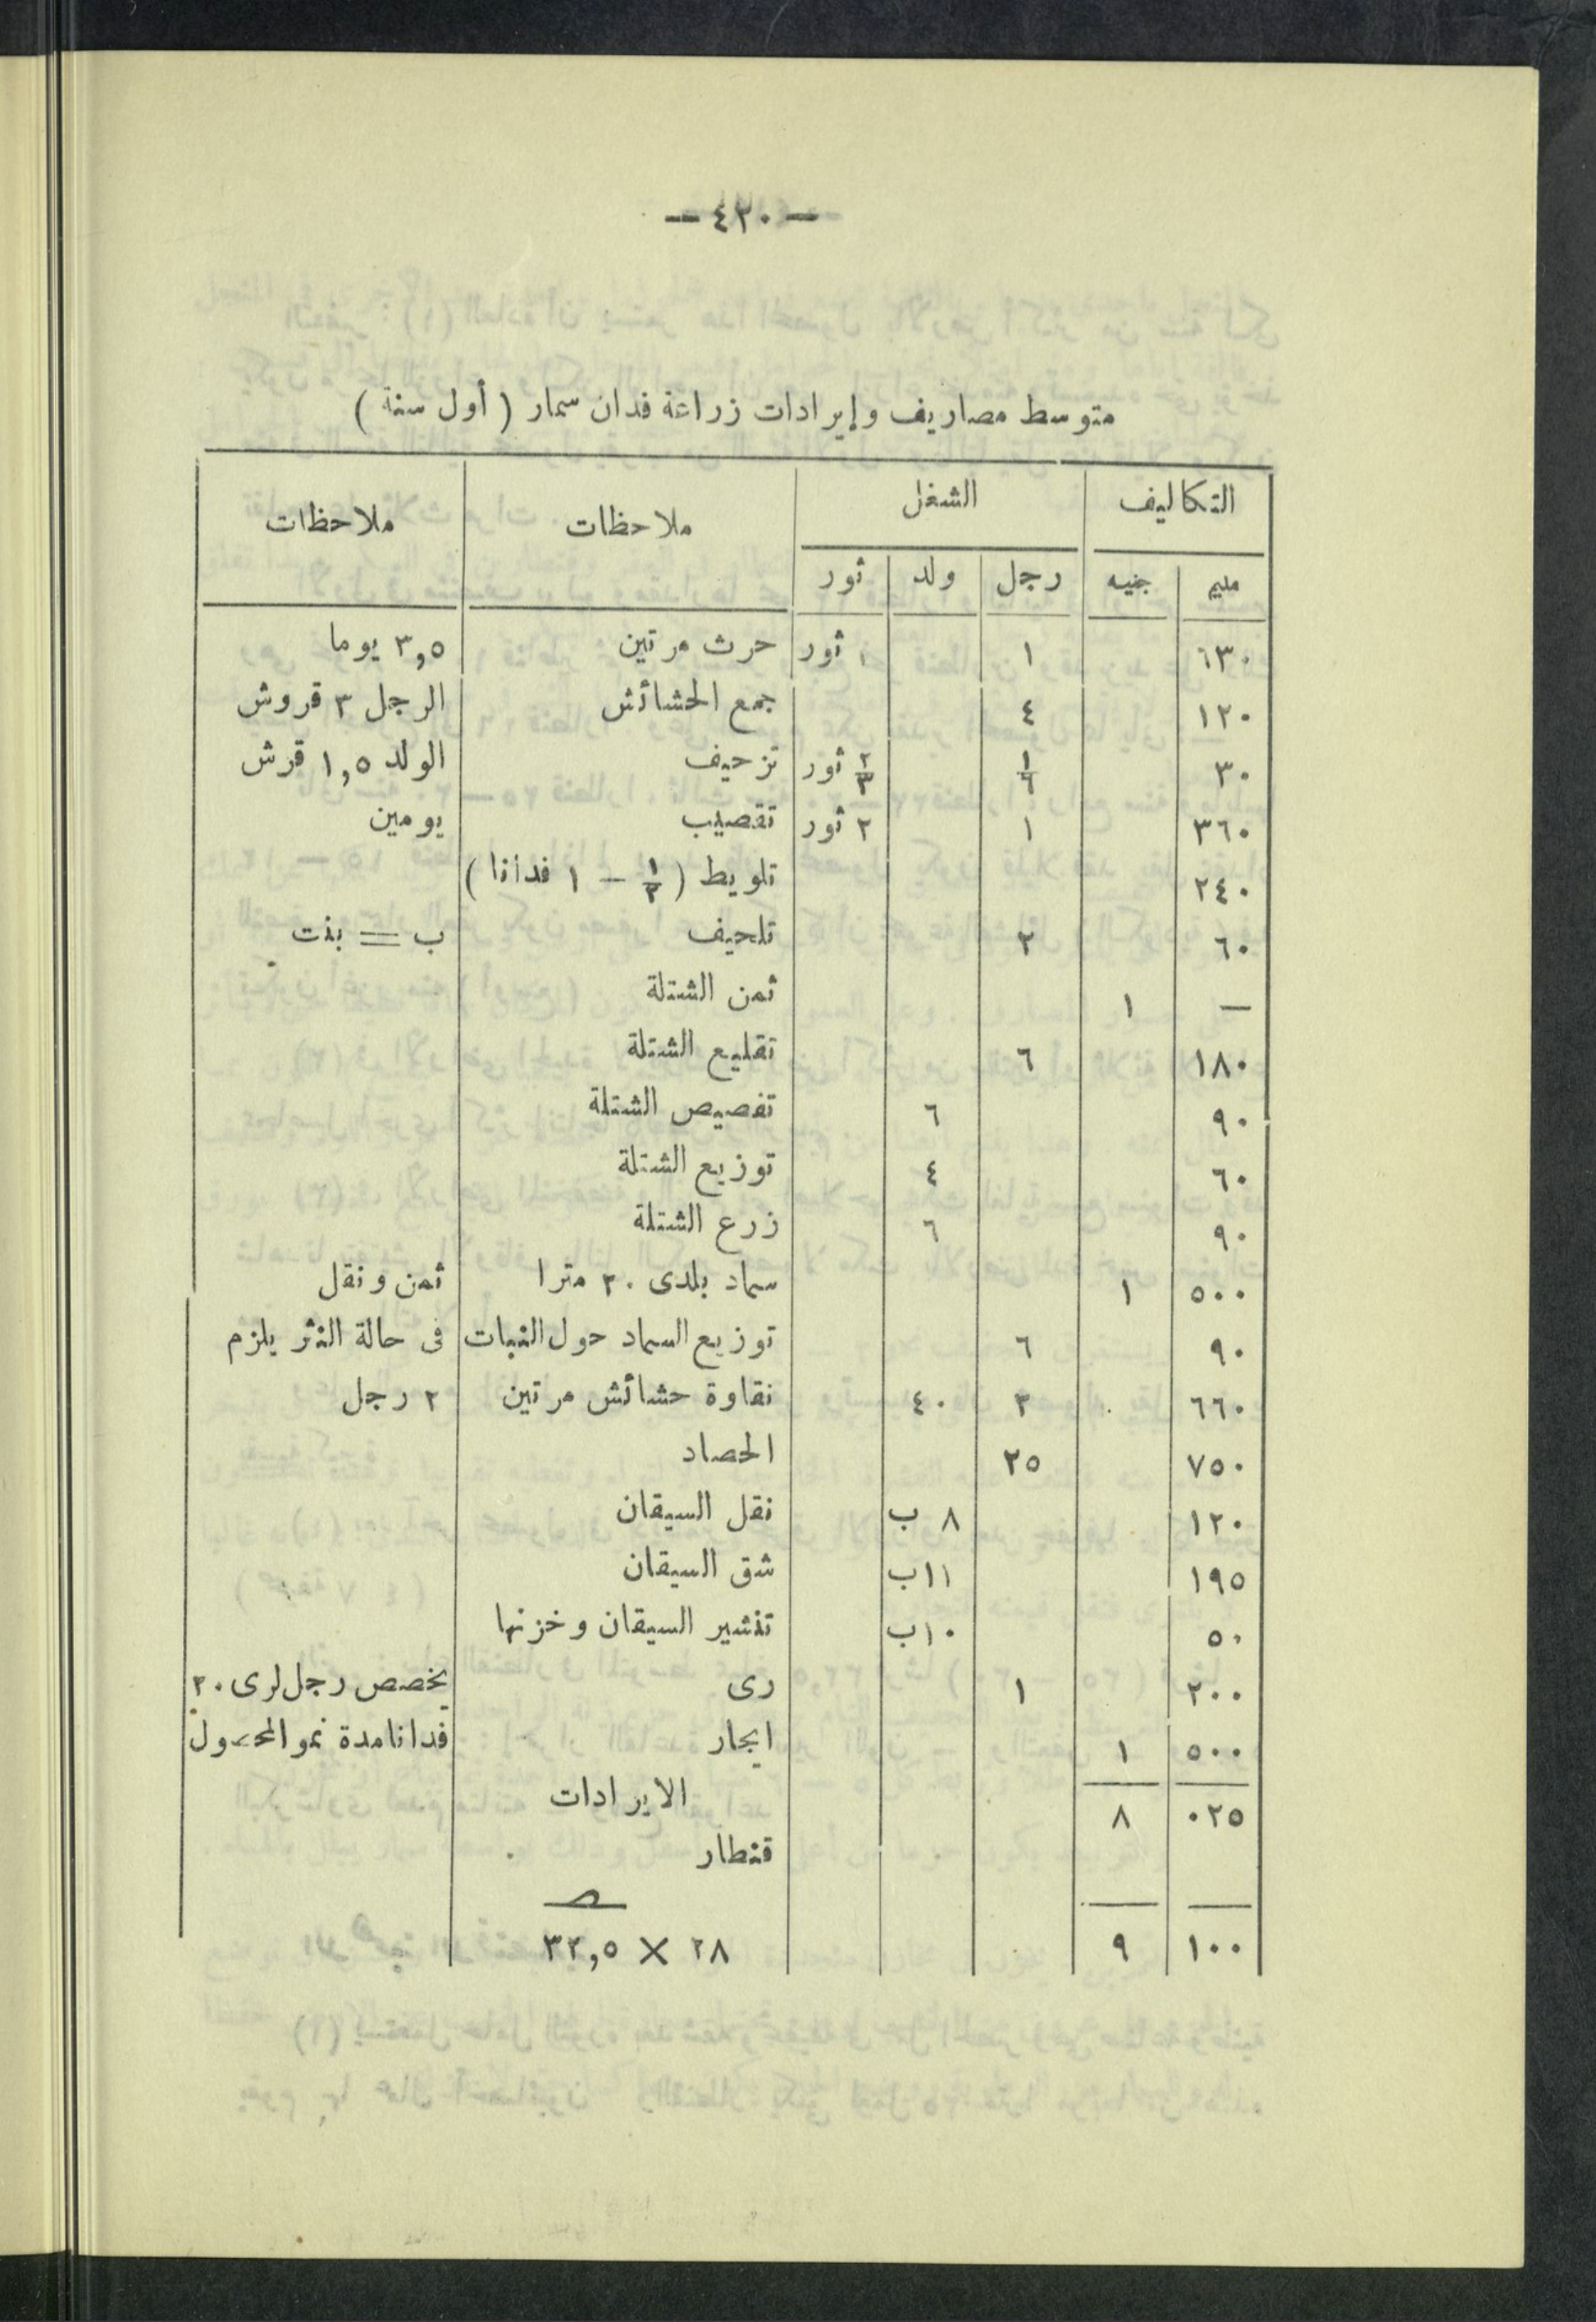 — ٤٢٠ —
متوسط مصاريف وإيرادات زراعة فدان سمار ( أول سنة )
التكاليف الشغل ملاحظات ملاحظات
مليم جنيه رجل ولد ثور
٦٣٠ ١ ١ ثور حرث مرتين ٣,٥ يوما
١٢٠ ٤ جمع الحشائش الرجل ٣ قروش
٣٠ ١/٦ ٢/٣ ثور تزحيف الولد ١,٥ قرش
٣٦٠ ١ ٢ ثور تقصيب يومين
٢٤٠ تلويط ( ١/٢ — ١ فدانا )
٦٠ ٢ تلحيف ب = بنت
— ١ ثمن الشتلة
١٨٠ ٦ تقليع الشتلة
٩٠ ٦ تفصيص الشتلة
٦٠ ٤ توزيع الشتلة
٩٠ ٦ زرع الشتلة
٥٠٠ ١ سماد بلدى ٢٠ مترا ثمن ونقل
٩٠ ٦ توزيع السماد حول النبات فى حالة النثر يلزم
٦٦٠ ٢ ٤٠ نقاوة حشائش مرتين ٢ رجل
٧٥٠ ٢٥ الحصاد
١٢٠ ٨ ب نقل السيقان
١٩٥ ١١ب شق السيقان
٥٠ ١٠ب تنشير السيقان وخزنها
٢٠٠ ١ رى يخصص رجل لرى ٢٠
٥٠٠ ١ ايجار فدانا مدة نمو المحصول
الايرادات
٠٢٥ ٨
قنطار
صـ
١٠٠ ٩ ٢٨ × ٣٢,٥